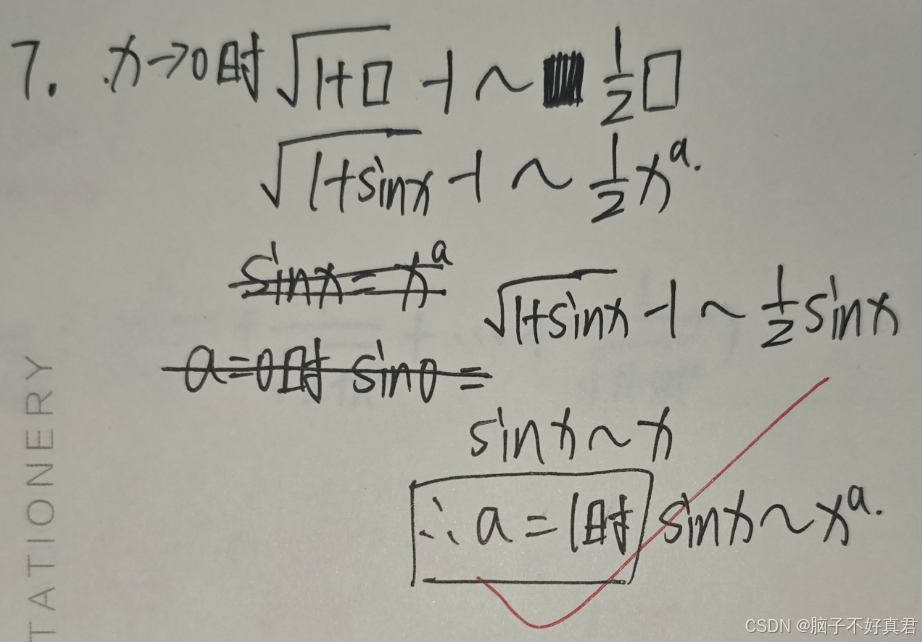 7. x→0时 √(1+□) -1 ~ 1/2 □
√(1+sinx) -1 ~ 1/2 x^a.
sinx = x^a
√(1+sinx) -1 ~ 1/2 sinx
a=0时 sin0 =
sinx ~ x
∴ a = 1时 sinx ~ x^a.
TATIONERY
CSDN @脑子不好真君